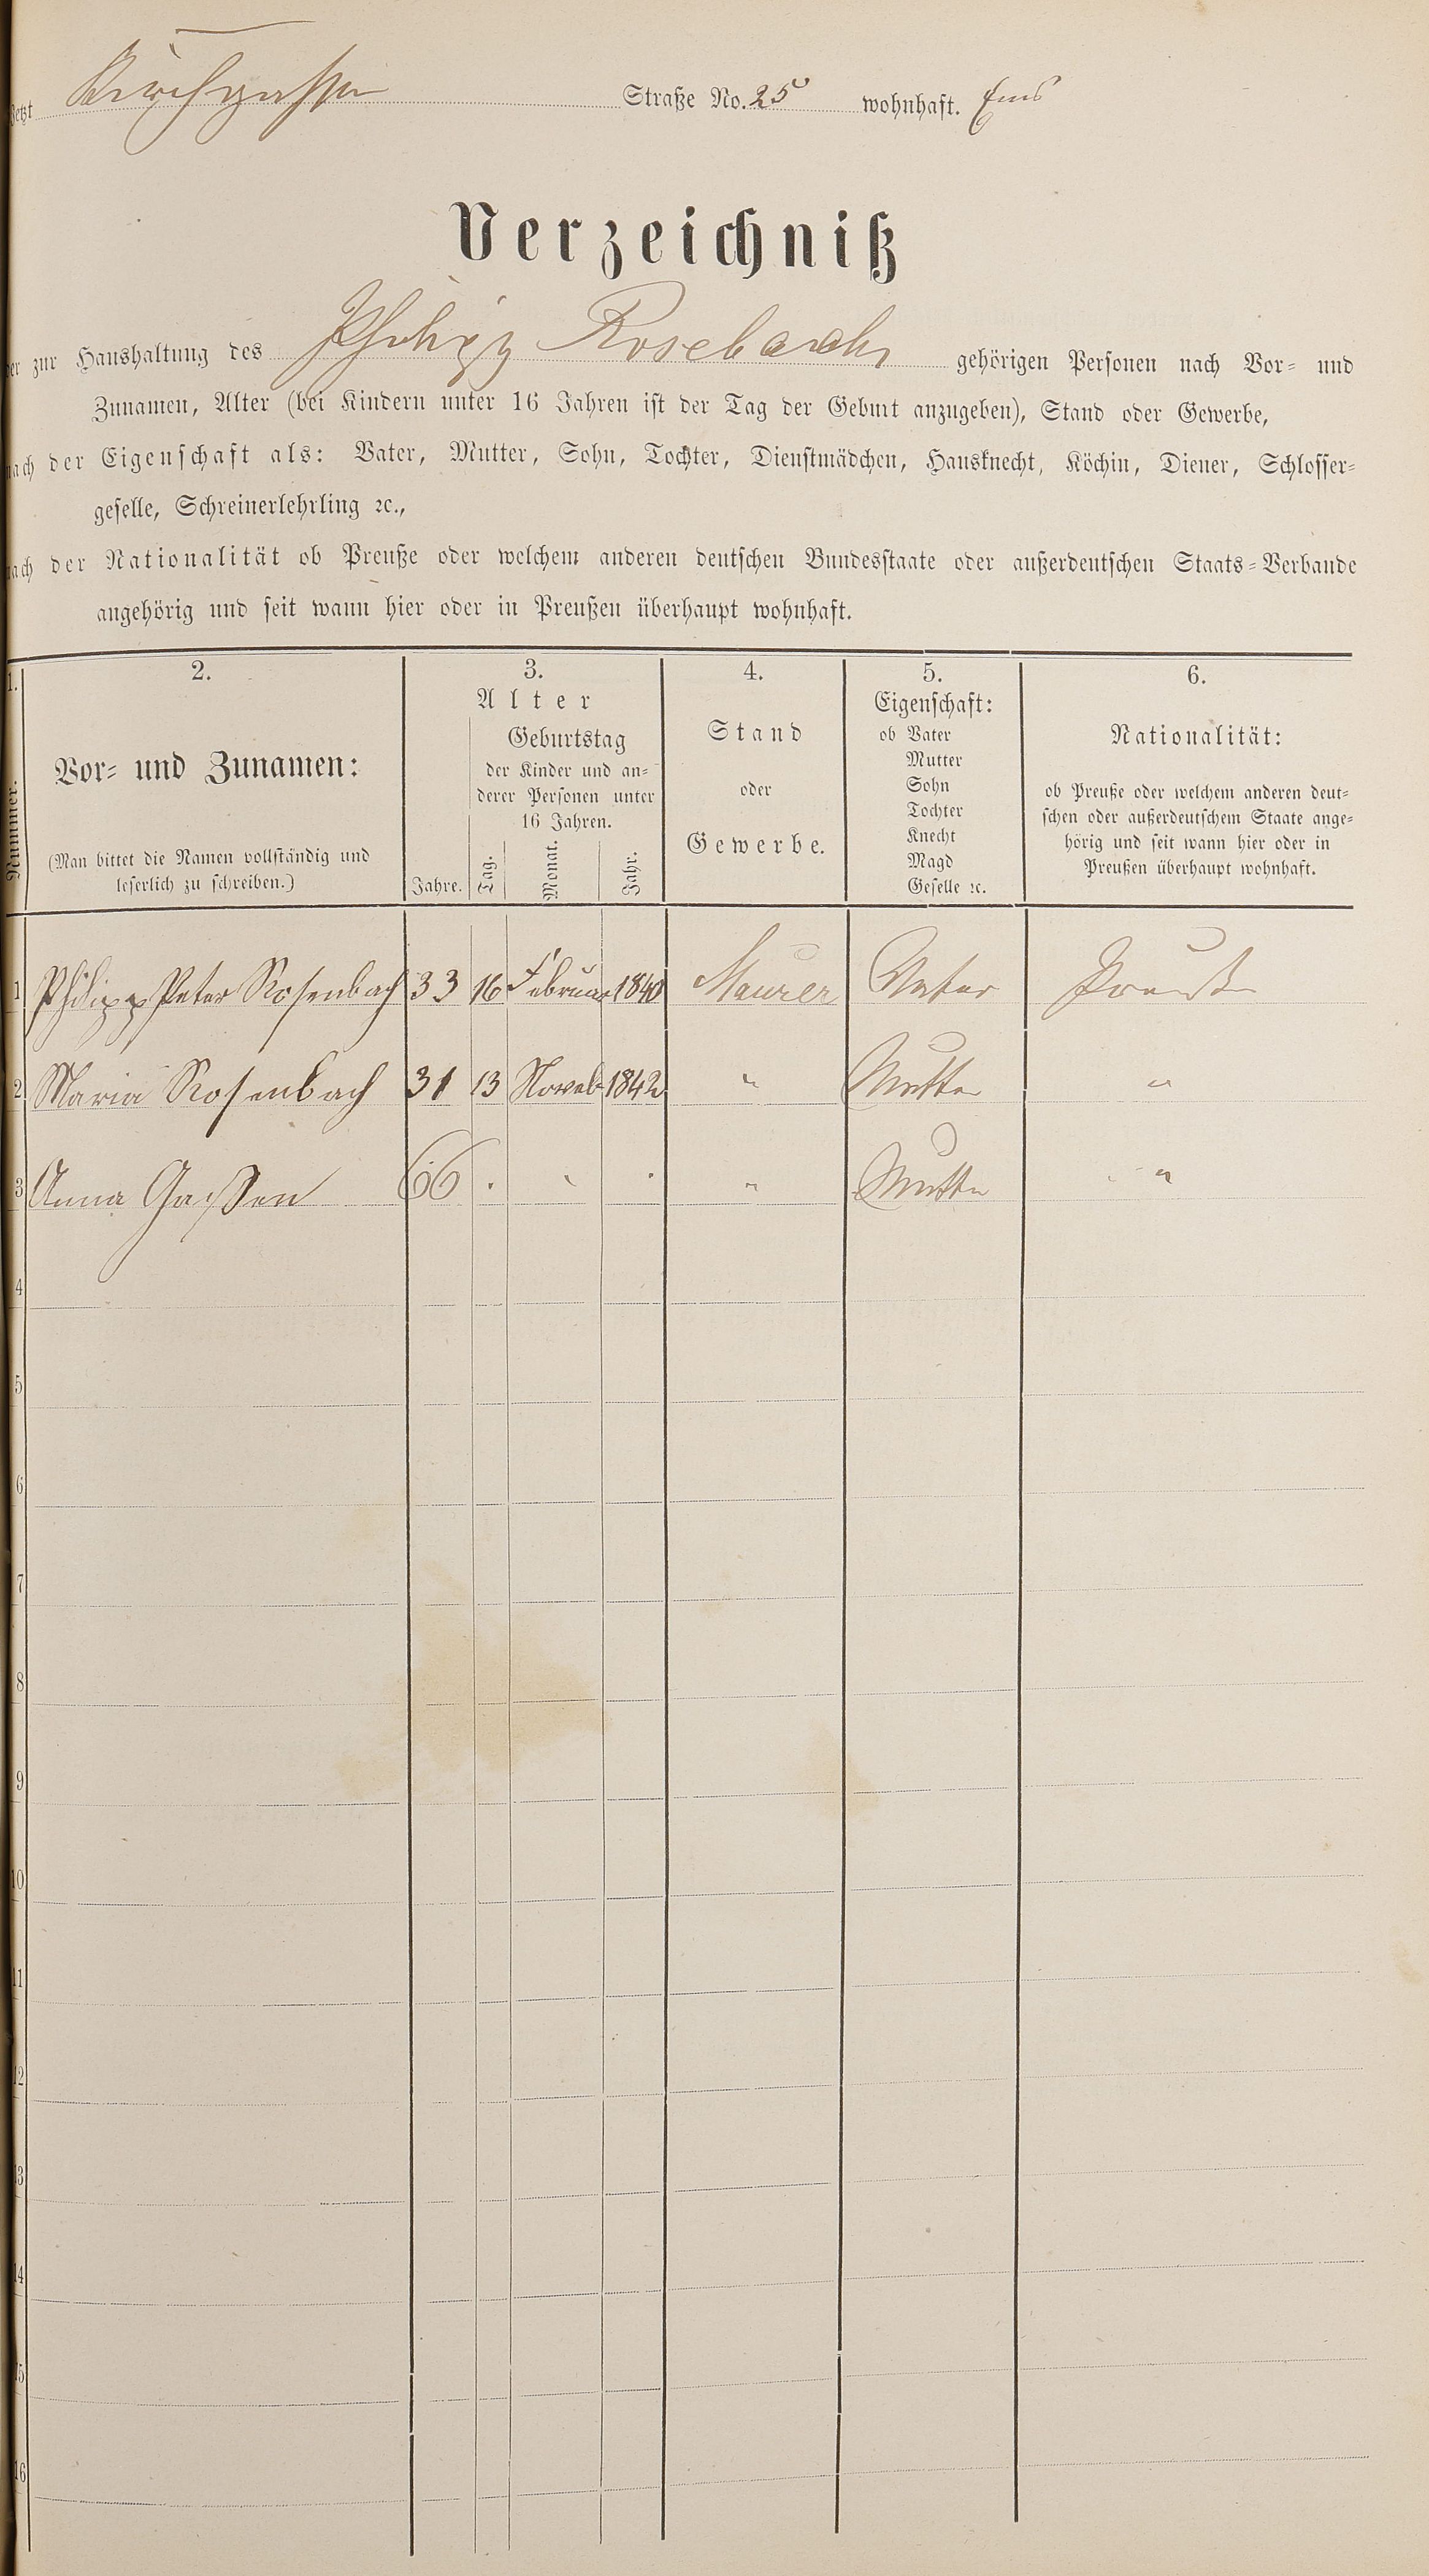 Jetzt Kirchgasse Straße No. 25 wohnhaft. Ems
Verzeichniß
der zur Haushaltung des Philipp Rosebach gehörigen Personen nach Vor- und
Zunamen, Alter (bei Kindern unter 16 Jahren ist der Tag der Geburt anzugeben), Stand oder Gewerbe,
nach der Eigenschaft als: Vater, Mutter, Sohn, Tochter, Dienstmädchen, Hausknecht, Köchin, Diener, Schlosser-
geselle, Schreinerlehrling ꝛc.,
nach der Nationalität ob Preuße oder welchem anderen deutschen Bundesstaate oder außerdeutschen Staats-Verbande
angehörig und seit wann hier oder in Preußen überhaupt wohnhaft.
1.
Nummer.
2.
Vor- und Zunamen:
(Man bittet die Namen vollständig und
leserlich zu schreiben.)
3.
Alter
Geburtstag
der Kinder und an-
derer Personen unter
16 Jahren.
Jahre. Tag. Monat. Jahr.
4.
Stand
oder
Gewerbe.
5.
Eigenschaft:
ob Vater
Mutter
Sohn
Tochter
Knecht
Magd
Geselle ꝛc.
6.
Nationalität:
ob Preuße oder welchem anderen deut-
schen oder außerdeutschem Staate ange-
hörig und seit wann hier oder in
Preußen überhaupt wohnhaft.
1 Philipp Peter Rosenbach 33 16 Februar 1840 Maurer Vater Preuße
2 Maria Rosenbach 31 13 Noveb 1842 " Mutter "
3 Anna Gaßen 66 " Mutter "
4
5
6
7
8
9
10
11
12
13
14
15
16